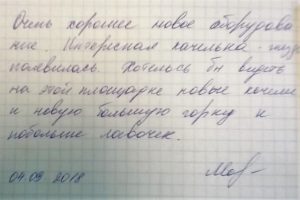 Очень хорошее новое оборудова
ние. Интересная качелька - гнездо
появилась. Хотелось бы видеть
на этой площадке новые качели
и новую большую горку и
побольше лавочек.
04.09 2018